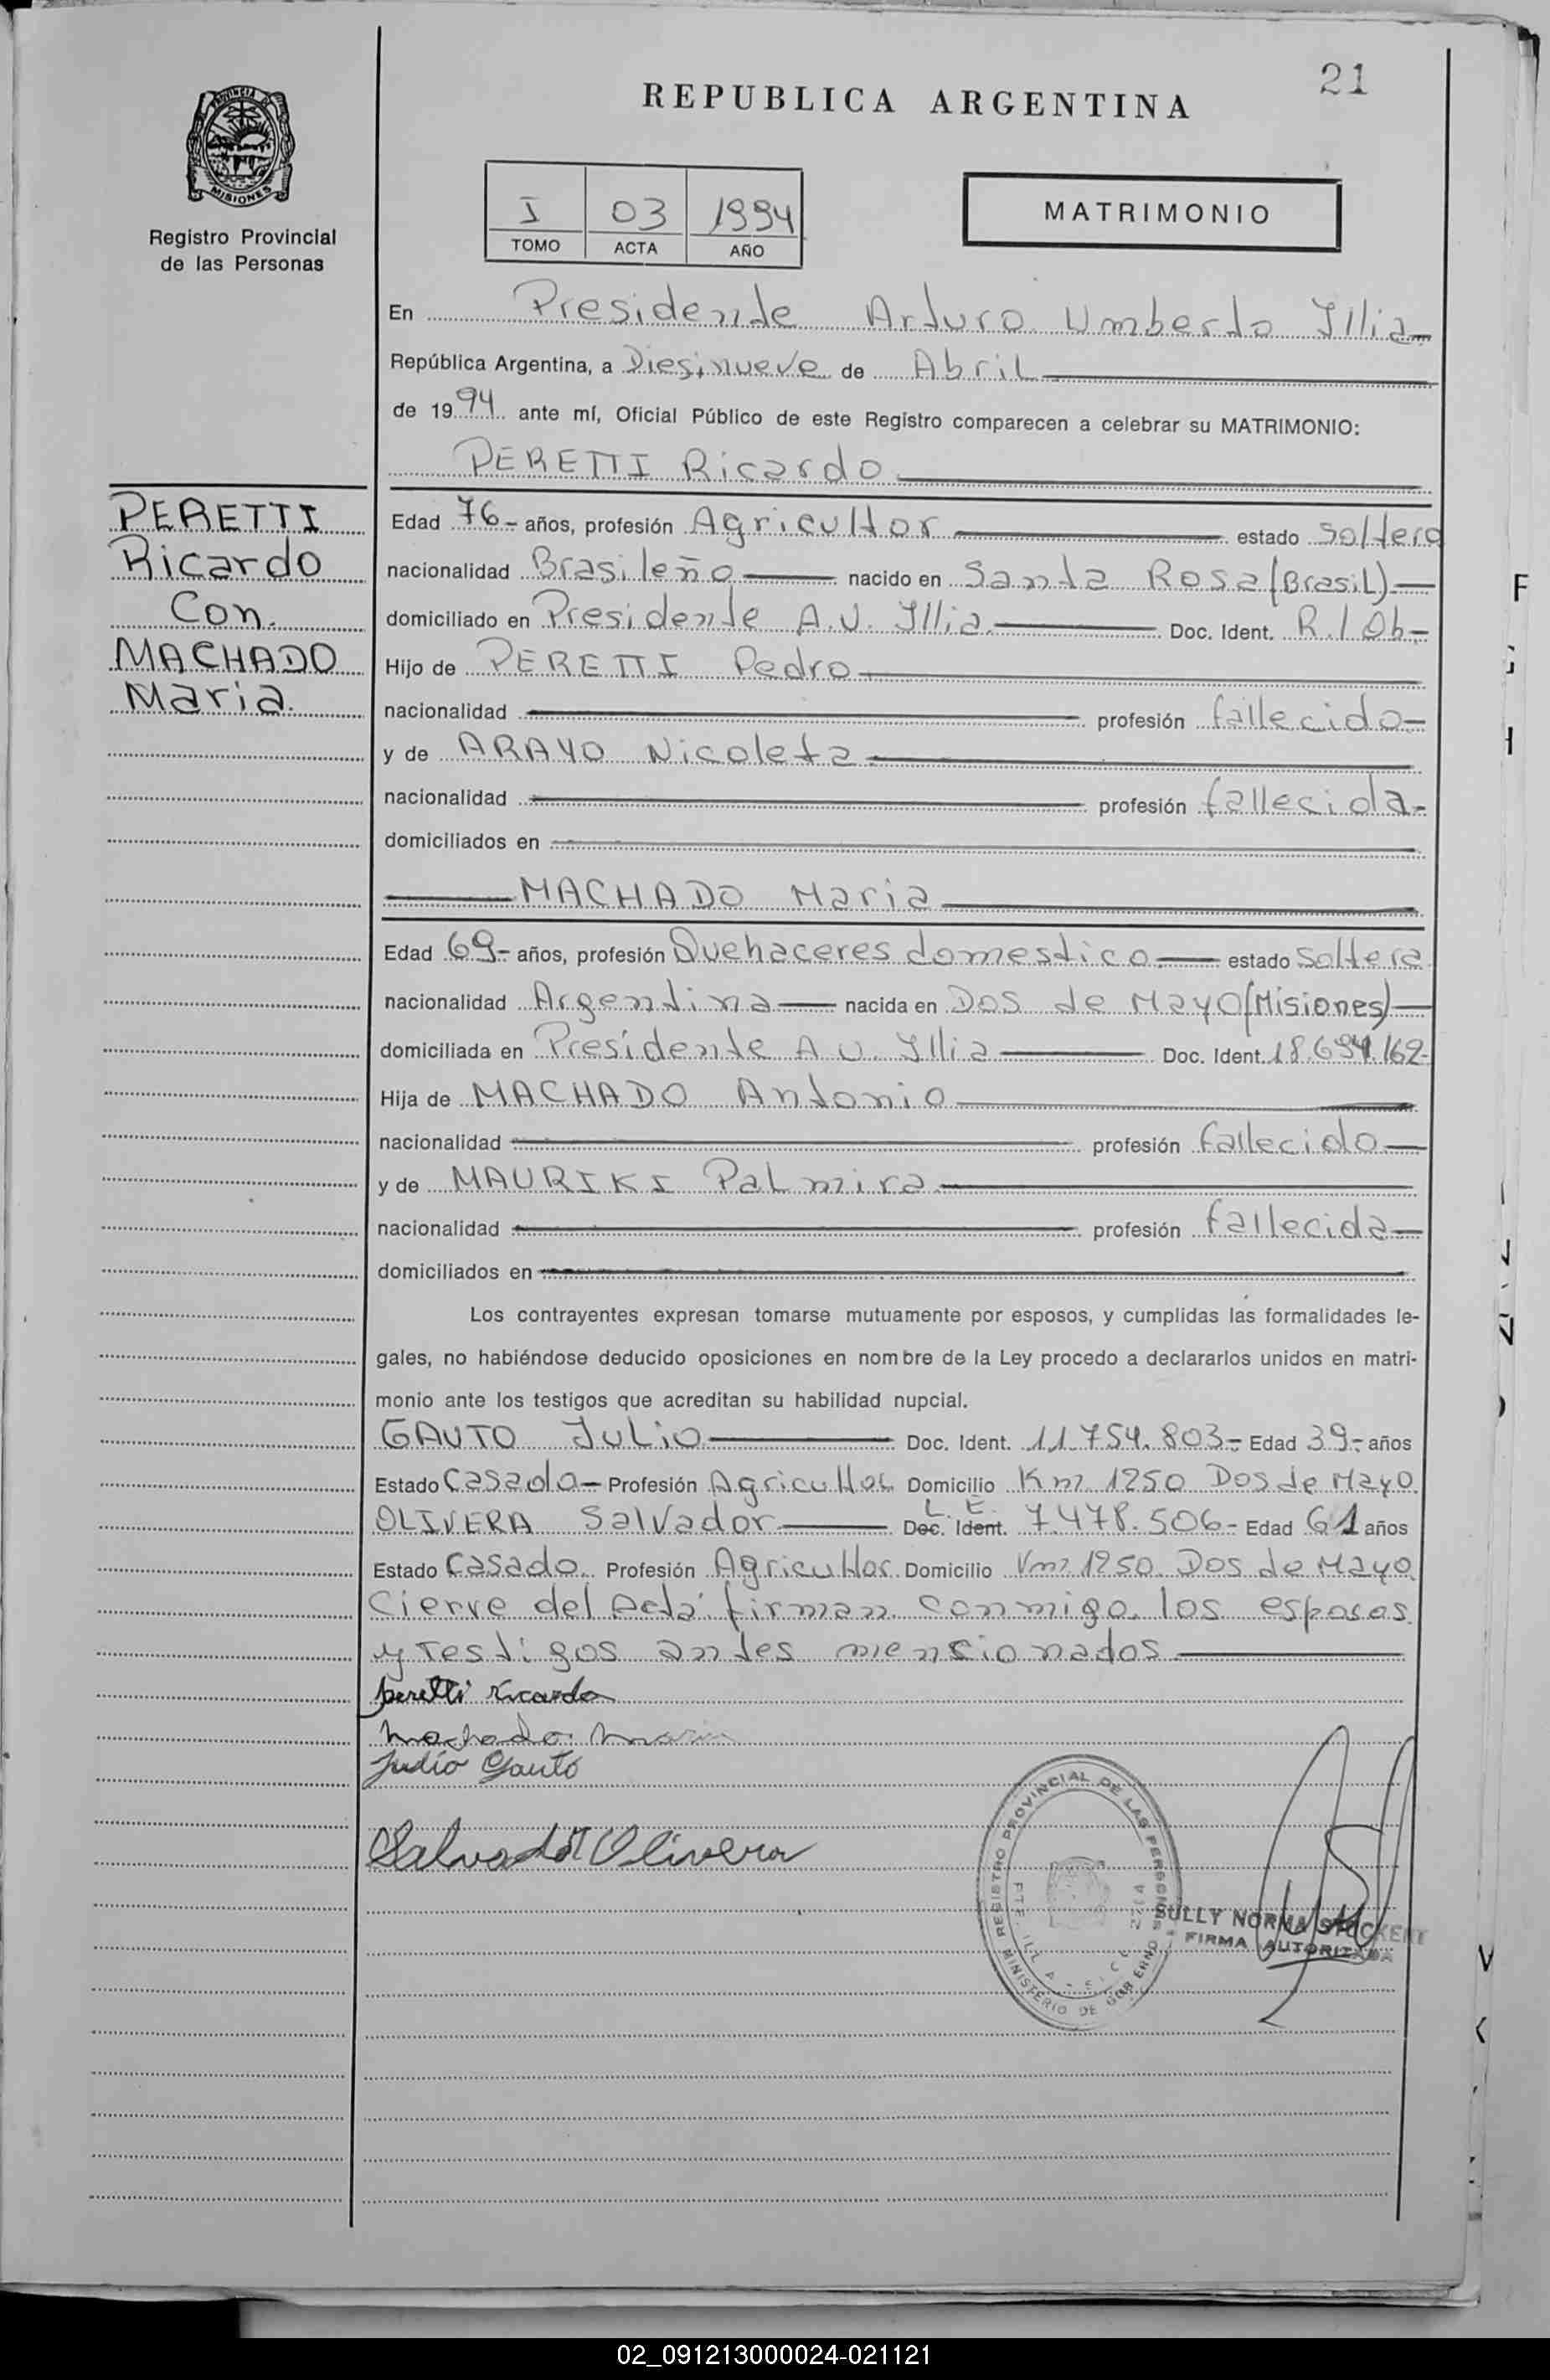 21
REPUBLICA ARGENTINA
PROVINCIA DE
MISIONES
Registro Provincial
de las Personas
I 03 1994
TOMO ACTA AÑO
MATRIMONIO
En Presidente Arturo Umberto Illia
República Argentina, a Diesinueve de Abril
de 1994 ante mí, Oficial Público de este Registro comparecen a celebrar su MATRIMONIO:
PERETTI Ricardo
PERETTI
Ricardo
Con.
MACHADO
Maria.
Edad 76- años, profesión Agricultor estado soltero
nacionalidad Brasileño nacido en Santa Rosa (Brasil)
domiciliado en Presidente A.U. Illia. Doc. Ident.
Hijo de PERETTI Pedro
nacionalidad profesión fallecido
y de ARAYO Nicoleta
nacionalidad profesión fallecida
domiciliados en
MACHADO Maria
Edad 69- años, profesión Quehaceres domestico estado soltera
nacionalidad Argentina nacida en Dos de Mayo (Misiones)
domiciliada en Presidente A U. Illia Doc. Ident. 18.694.162-
Hija de MACHADO Antonio
nacionalidad profesión fallecido
y de MAURIKI Palmira
nacionalidad profesión fallecida
domiciliados en
Los contrayentes expresan tomarse mutuamente por esposos, y cumplidas las formalidades le-
gales, no habiéndose deducido oposiciones en nombre de la Ley procedo a declararlos unidos en matri-
monio ante los testigos que acreditan su habilidad nupcial.
GAUTO Julio Doc. Ident. 11.754.803- Edad 39- años
Estado Casado- Profesión Agricultor Domicilio Km. 1250 Dos de Mayo
OLIVERA Salvador L.E. Doc. Ident. 7.478.506- Edad 61 años
Estado Casado. Profesión Agricultor Domicilio Km. 1250 Dos de Mayo
Cierre del Acta firman conmigo los esposos
y testigos antes mencionados
peretti ricardo
machado maria
Julio Gauto
Salvador Olivera
REGISTRO PROVINCIAL DE LAS PERSONAS
MINISTERIO DE GOBIERNO
SULLY NORMA STOCKERT
FIRMA AUTORIZADA
02_091213000024-021121